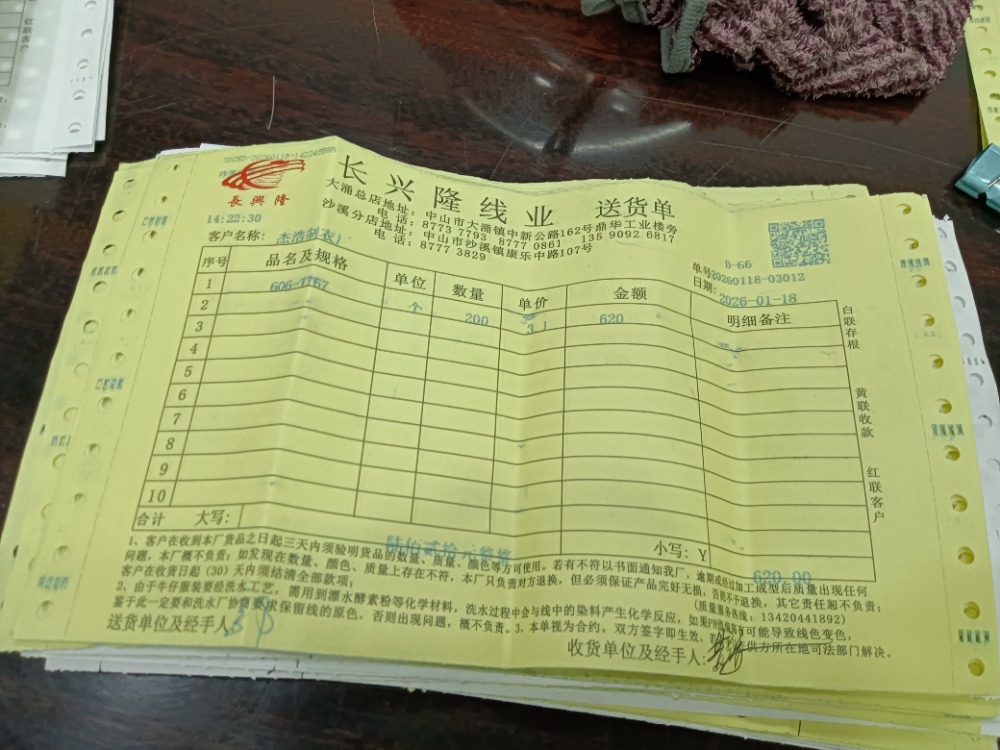 长兴隆线业 送货单
長興隆
大涌总店地址:中山市大涌镇中新公路162号鼎华工业楼旁
电话:8773 7793 8777 0861 135 9092 6817
沙溪分店地址:中山市沙溪镇康乐中路107号
电话:8777 3829
14:22:30
B-66
客户名称:杰浩制衣厂
单号20260118-03012
日期:2026-01-18
序号 品名及规格 单位 数量 单价 金额 明细备注
1 606-1167 个 200 3.1 620
2
3
4
5
6
7
8
9
10
合计 大写: 陆佰贰拾元整 小写:Y 620.00
白联存根
黄联收款
红联客户
1、客户在收到本厂货品之日起三天内须验明货品的数量、质量、颜色等方可使用。若有不符以书面通知我厂,逾期或经过加工成型后质量出现任何
问题,本厂概不负责;如发现在数量、颜色、质量上存在不符,本厂只负责对方退换,但必须保证产品完好无损,否则不予退换,其它责任恕不负责;
客户在收货日起(30)天内须结清全部款项; (质量服务热线:13420441892)
2、由于牛仔服装要经洗水工艺,需用到漂水酵素粉等化学材料,洗水过程中会与线中的染料产生化学反应,如果PH值偏高有可能导致线色变色,
鉴于此一定要和洗水厂协商要求保留线的原色,否则出现问题,概不负责。3、本单视为合约,双方签字即生效,供方所在地司法部门解决。
送货单位及经手人:
收货单位及经手人: